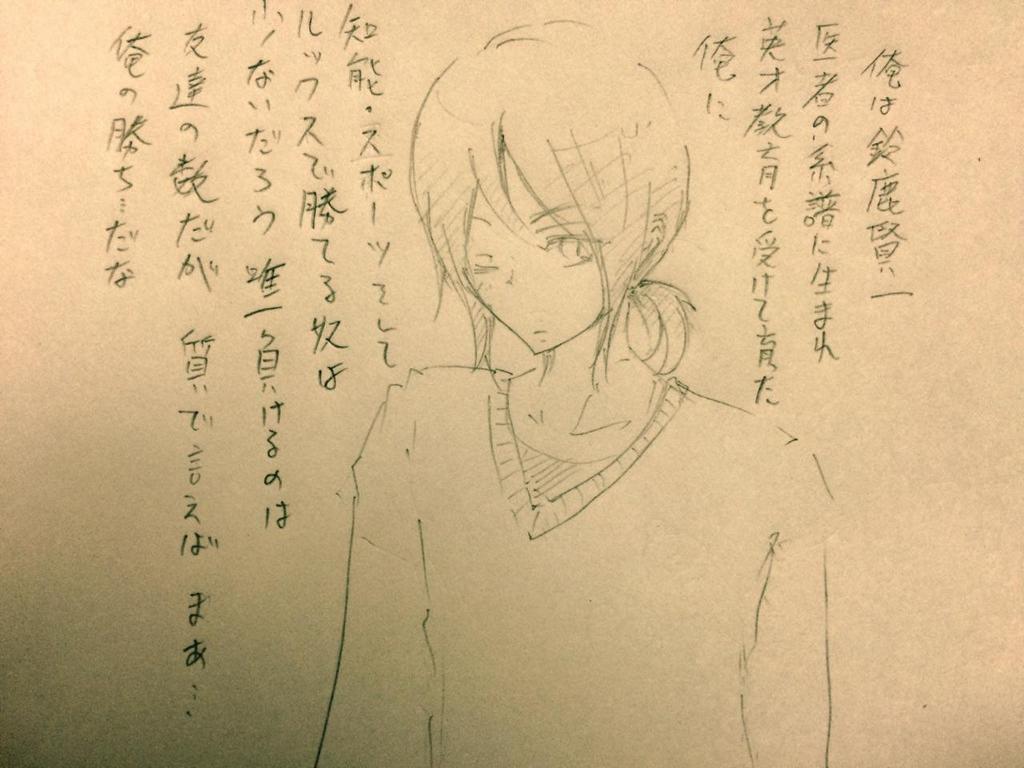 俺は鈴鹿賢一
医者の系譜に生まれ
英才教育を受けて育った
俺に
知能・スポーツそして
ルックスで勝てる奴は
少ないだろう 唯一負けるのは
友達の数だが 質で言えば まあ…
俺の勝ち…だな